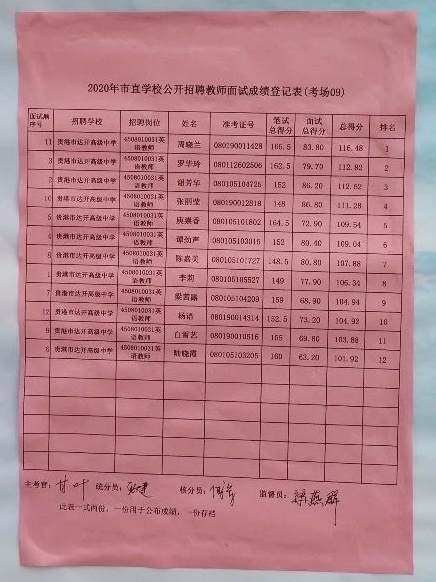 2020年市直学校公开招聘教师面试成绩登记表(考场09)
面试顺序号 招聘学校 招聘岗位 姓名 准考证号 笔试总得分 面试总得分 总得分 排名
11 贵港市达开高级中学 4508010031英语教师 周晓兰 080190011428 165.5 83.80 116.48 1
3 贵港市达开高级中学 4508010031英语教师 罗华玲 080112602506 162.5 79.70 112.82 2
2 贵港市达开高级中学 4508010031英语教师 谢芳华 080105104725 152 86.20 112.52 3
10 贵港市达开高级中学 4508010031英语教师 张丽莹 080190012818 148 86.80 111.28 4
5 贵港市达开高级中学 4508010031英语教师 庾琪香 080105101802 164.5 72.90 109.54 5
4 贵港市达开高级中学 4508010031英语教师 谭劲声 080105103015 152 80.40 109.04 6
8 贵港市达开高级中学 4508010031英语教师 陈嘉美 080105101727 148.5 80.80 107.88 7
1 贵港市达开高级中学 4508010031英语教师 李莉 080105105527 149 77.90 106.34 8
7 贵港市达开高级中学 4508010031英语教师 梁茜露 080105104209 159 68.90 104.94 9
12 贵港市达开高级中学 4508010031英语教师 杨语 080190014314 152.5 73.20 104.92 10
9 贵港市达开高级中学 4508010031英语教师 白雪艺 080190010516 155 69.80 103.88 11
6 贵港市达开高级中学 4508010031英语教师 陆晓霞 080105103205 160 63.20 101.92 12
主考官： 统分员： 核分员： 监督员：
此表一式两份，一份用于公布成绩，一份存档